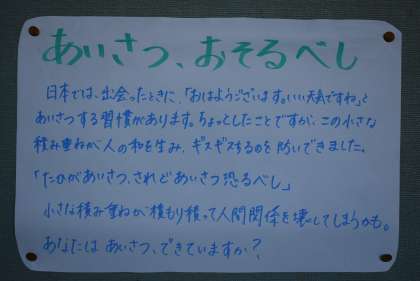 あいさつ、おそるべし
日本では、出会ったときに、「おはようございます。いい天気ですね」と
あいさつする習慣があります。ちょっとしたことですが、この小さな
積み重ねが人の和を生み、ギスギスするのを防いできました。
「たかがあいさつ、されどあいさつ恐るべし」
小さな積み重ねが積もり積って人間関係を壊してしまうかも。
あなたは あいさつ、できていますか?